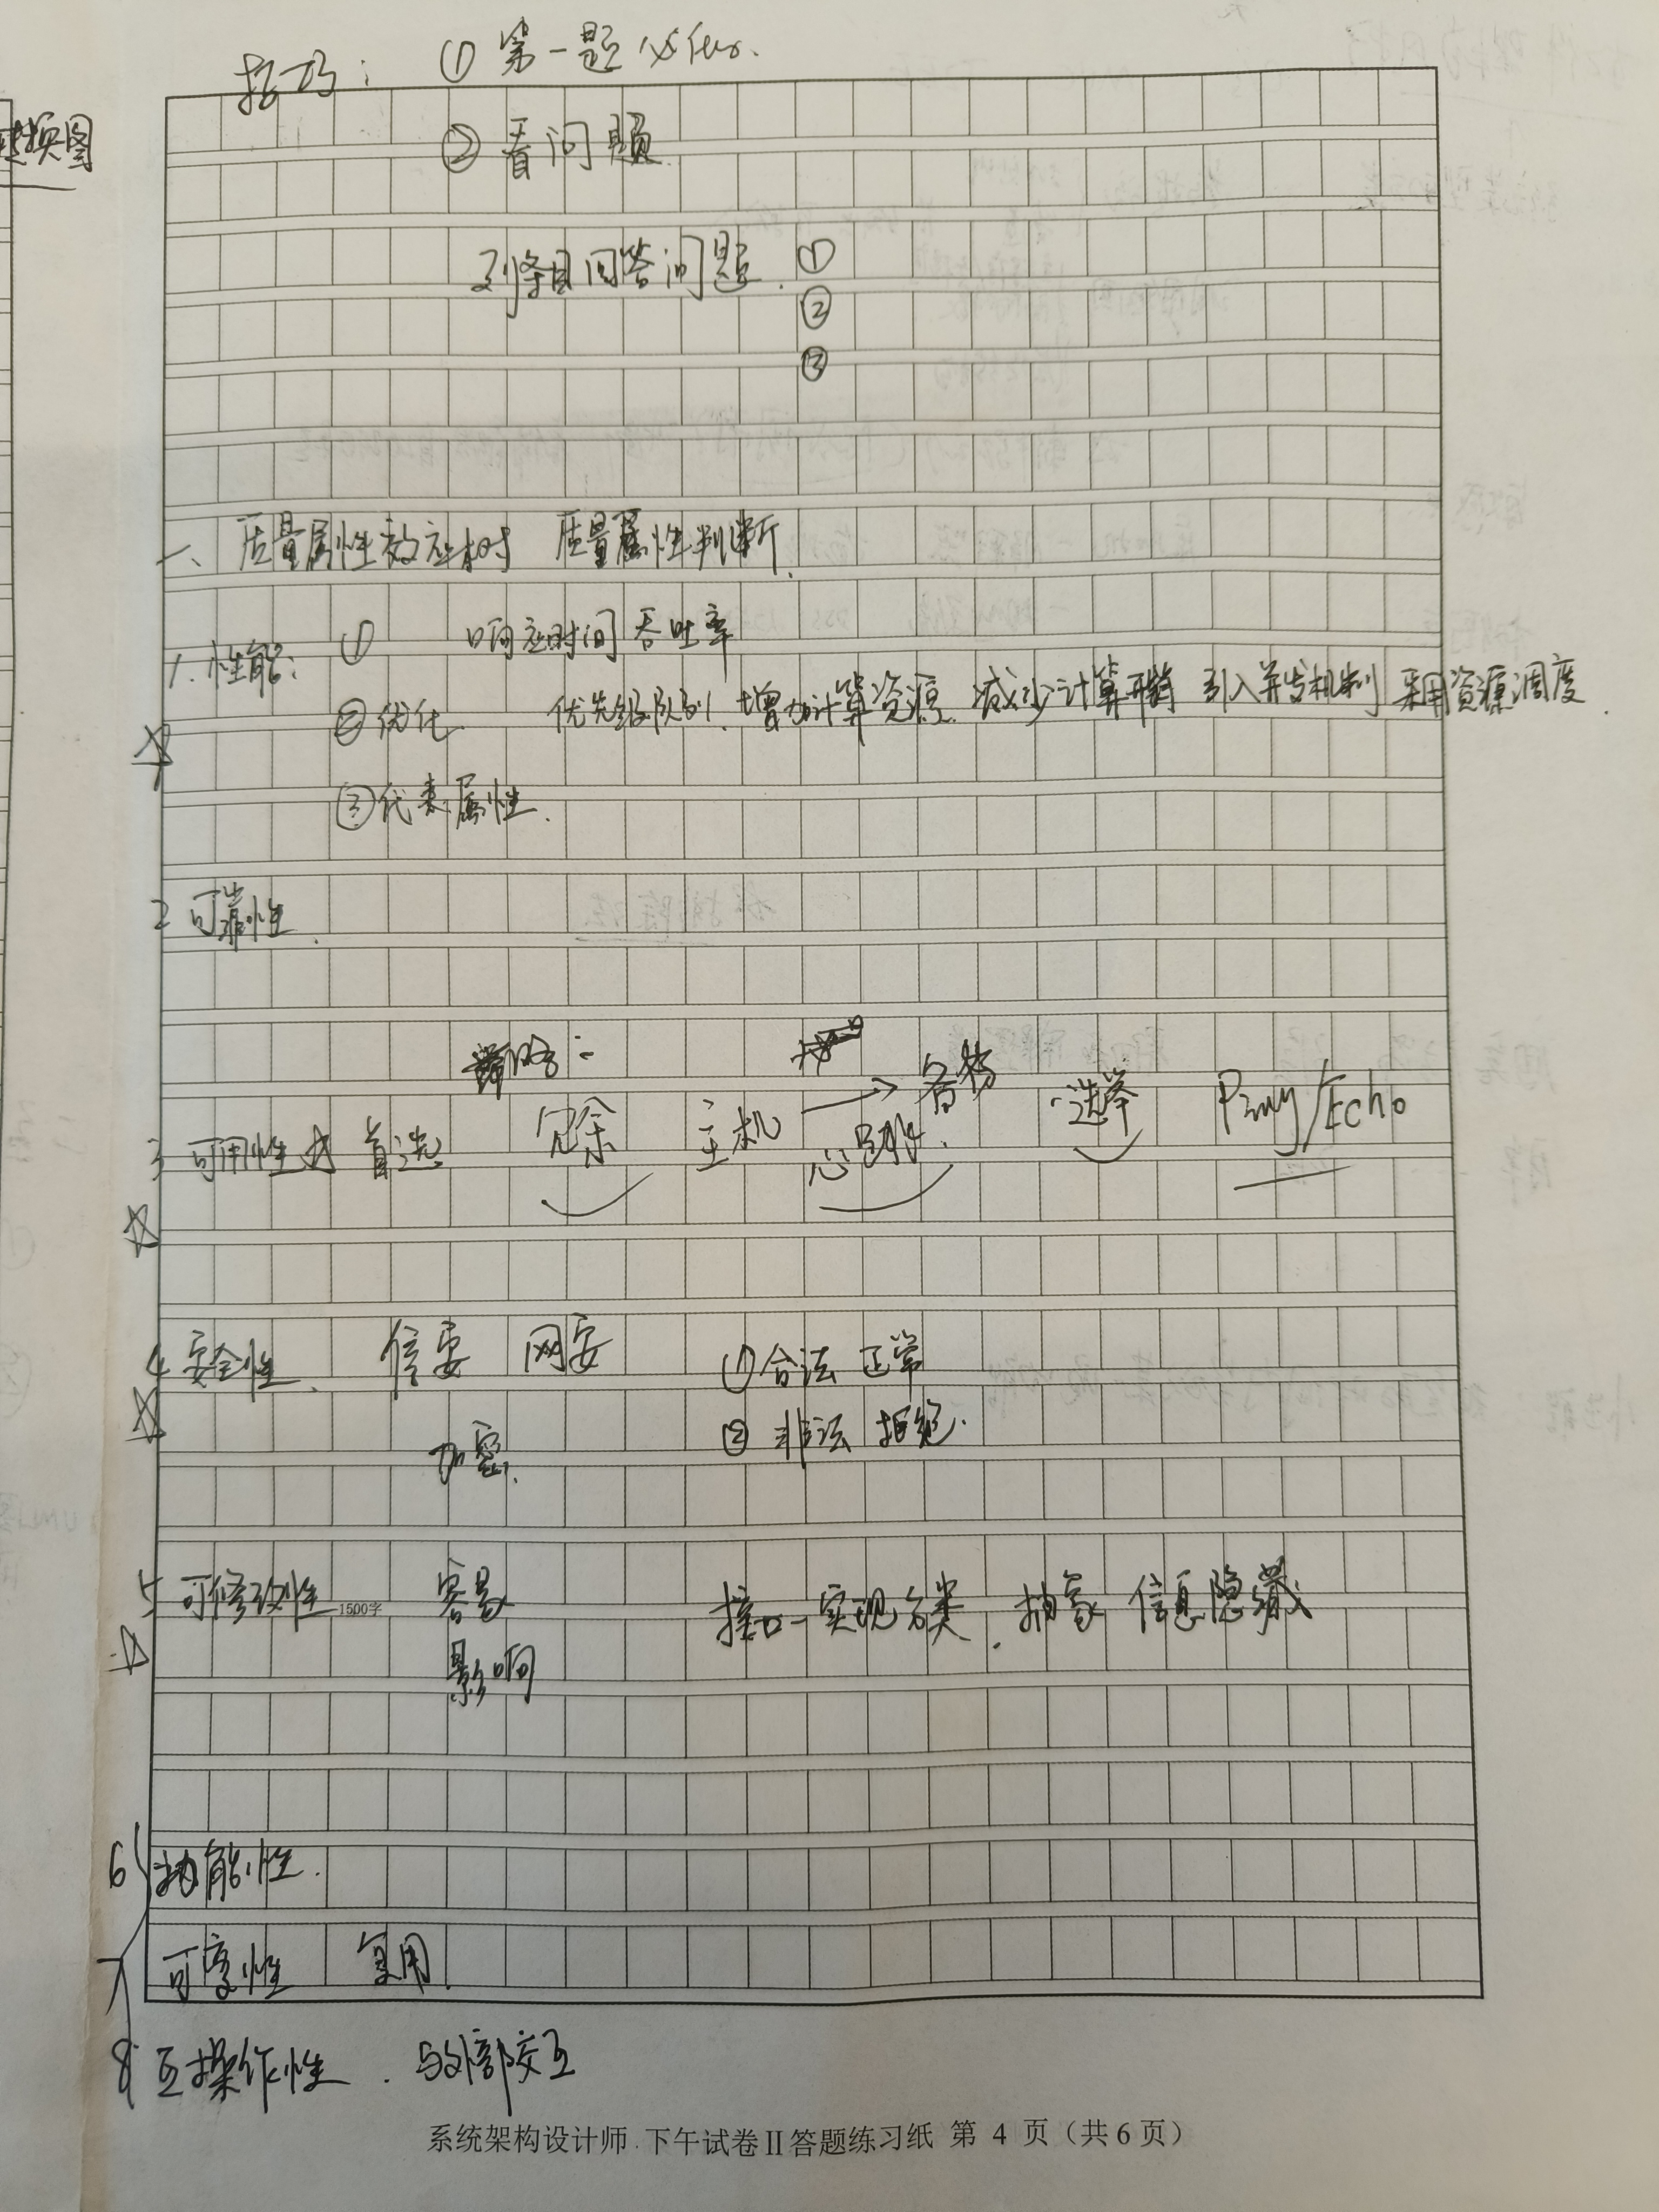 技巧： ① 第一题必做.
转换图
② 看问题.
列条目回答问题. ①
②
③
一、质量属性效应树 质量属性判断.
1. 性能: ① 响应时间 吞吐率
② 优化 优先级队列. 增加计算资源. 减少计算开销 引入并发机制 采用资源调度.
③ 代表属性.
2 可靠性.
策略:
3 可用性 首选 冗余 主机 → 备份 心跳. 选举 Ping/Echo
4 安全性. 信安 网安 ① 合法 正常
加密. ② 非法 拒绝.
5 可修改性 容易 接口-实现分类. 抽象 信息隐藏
1500字
影响
6 功能性.
7 可变性 复用.
8 互操作性. 与外部交互
系统架构设计师 下午试卷Ⅱ答题练习纸 第 4 页（共6页）